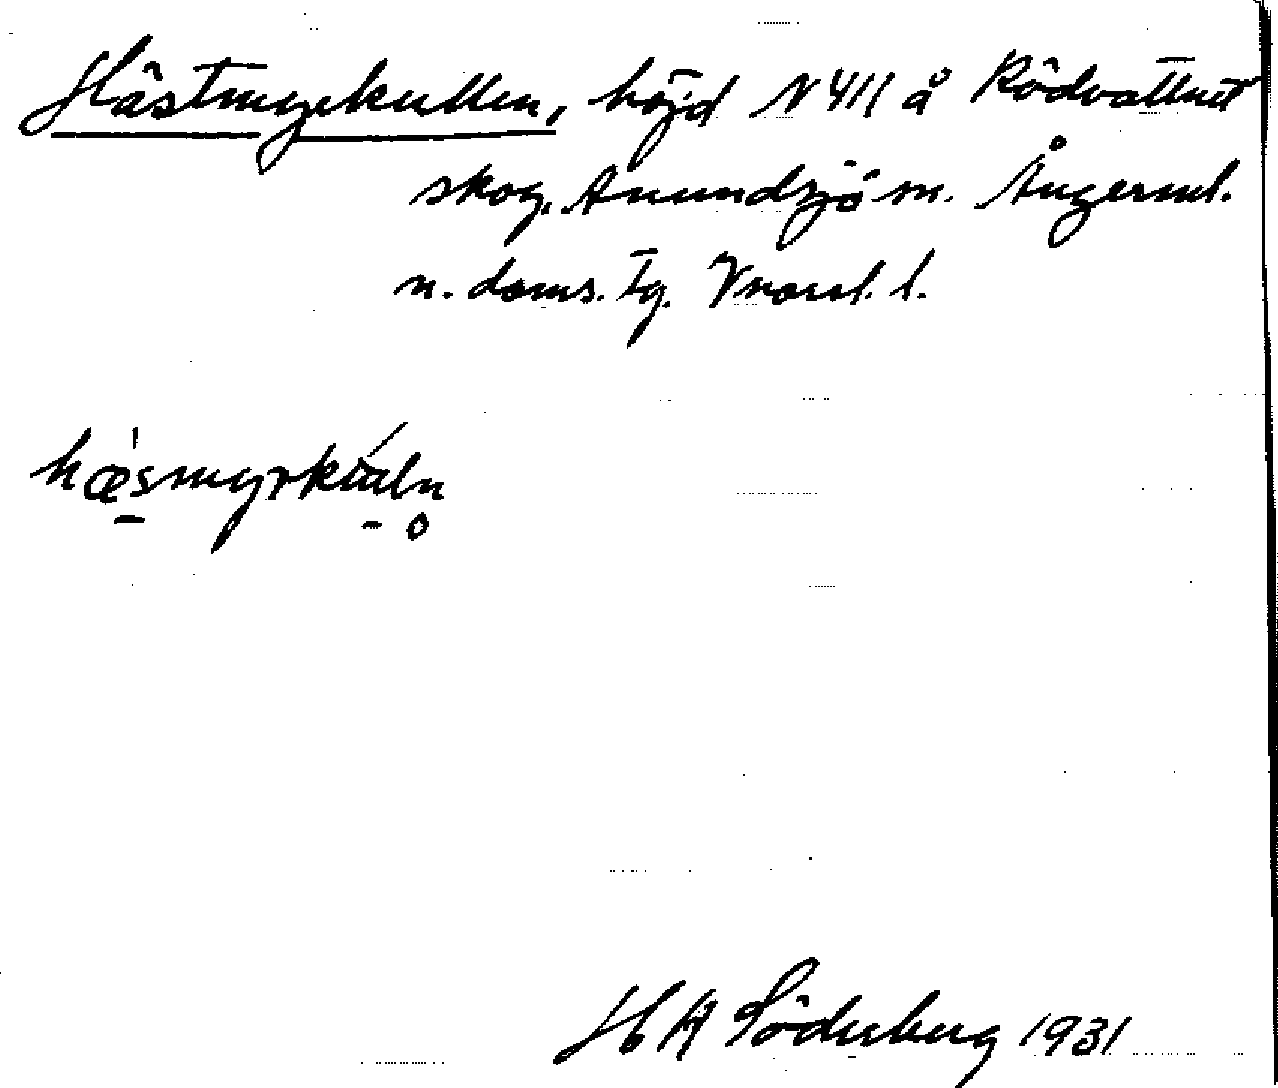 Hästmyrkullen, höjd N VIII å Rödvattnet
skog, Anundsjö sn. Ångerml.
n. doms. tg. Vnorrl. l.
hæsmyrkuln
H A Söderberg 1931